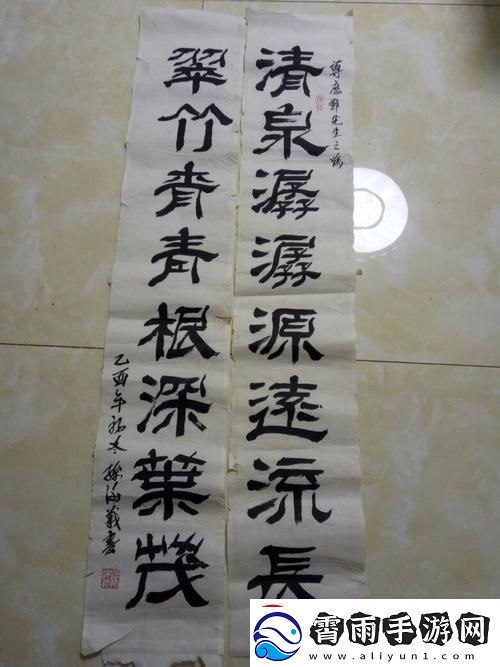 先生之
清泉潺潺源遠流長
翠竹青青根深葉茂
乙酉年初冬 孫海義書
霄雨手游网
www.aliyun1.com